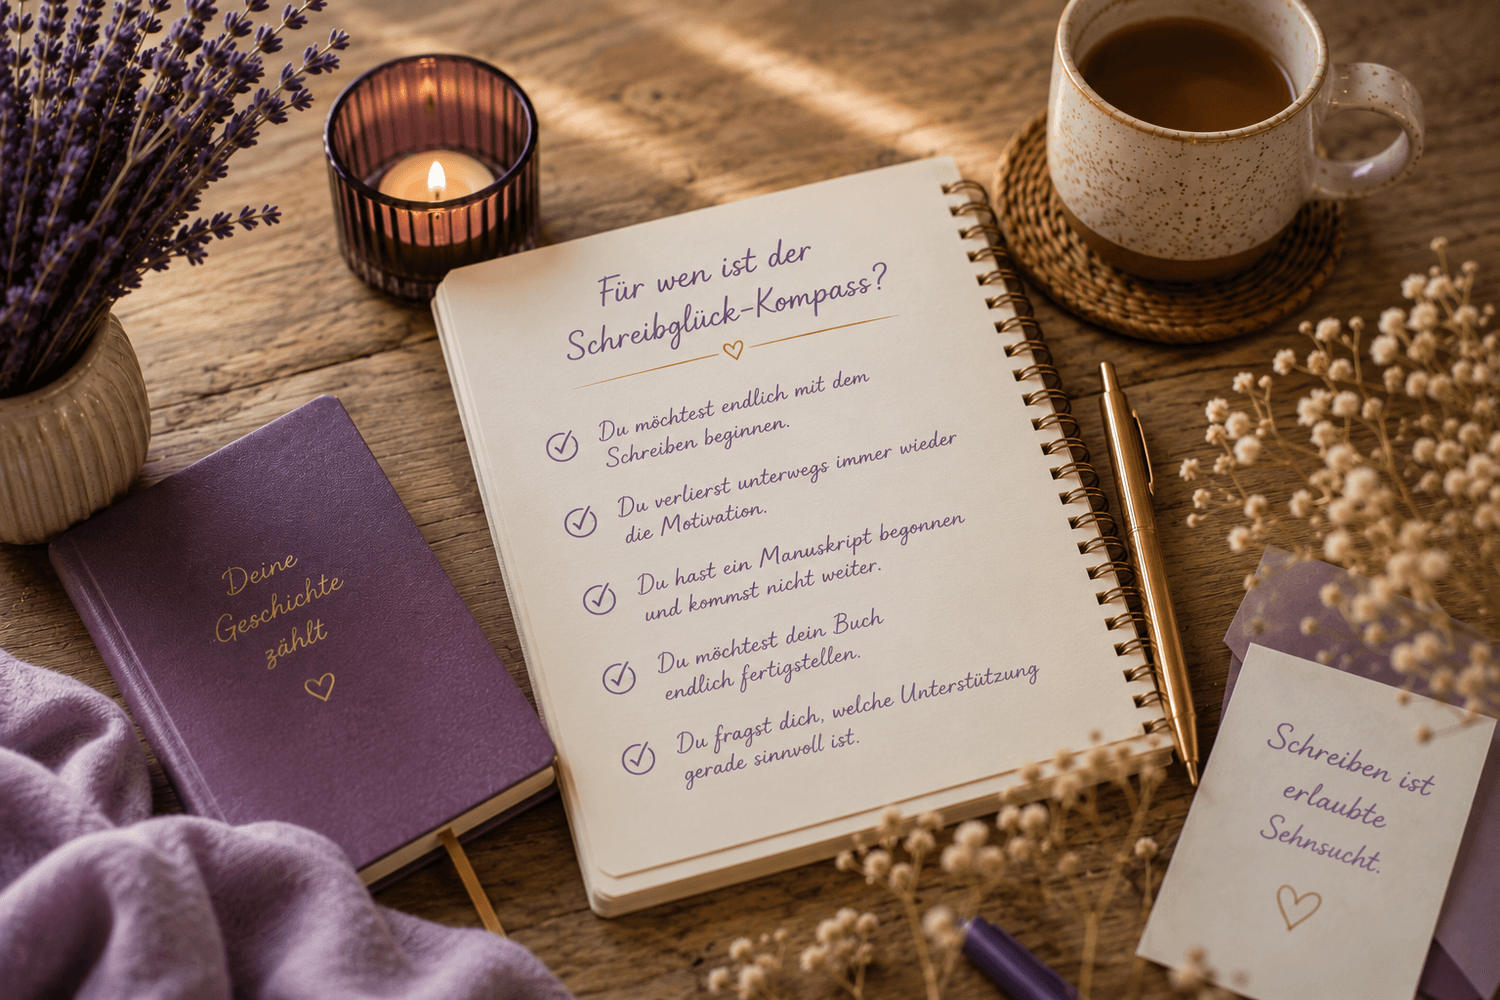 Für wen ist der
Schreibglück-Kompass?
Du möchtest endlich mit dem
Schreiben beginnen.
Du verlierst unterwegs immer wieder
die Motivation.
Du hast ein Manuskript begonnen
und kommst nicht weiter.
Du möchtest dein Buch
endlich fertigstellen.
Du fragst dich, welche Unterstützung
gerade sinnvoll ist.
Deine
Geschichte
zählt
Schreiben ist
erlaubte
Sehnsucht.